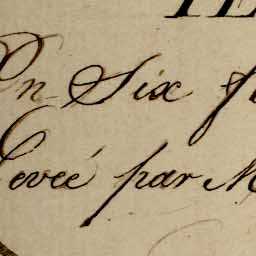 En Six
Levée par M